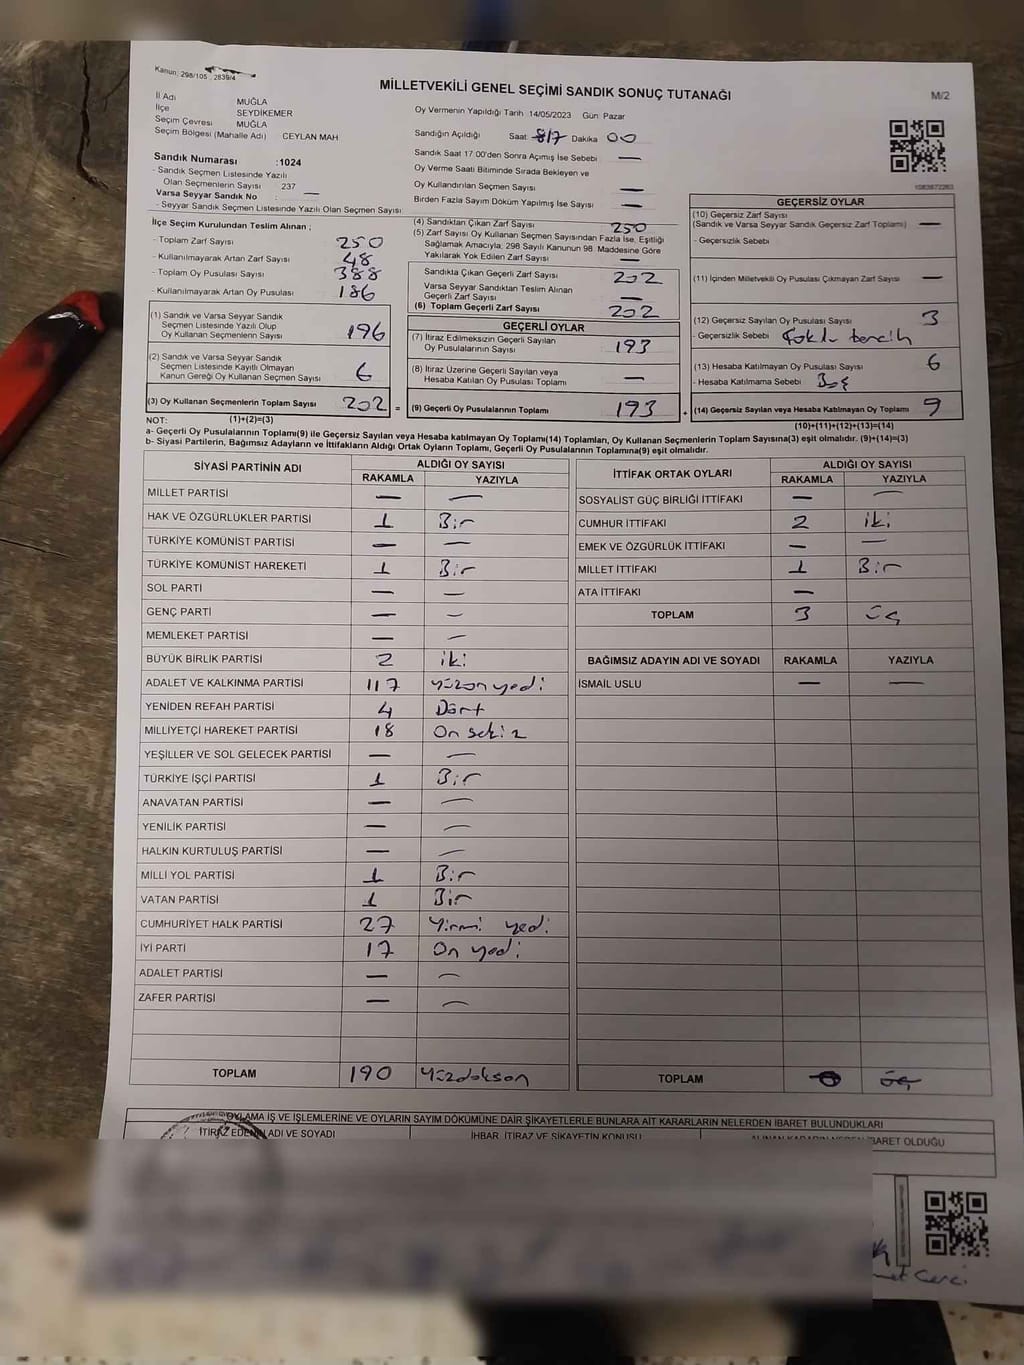 Kanun: 298/105, 2839/4
MİLLETVEKİLİ GENEL SEÇİMİ SANDIK SONUÇ TUTANAĞI
M/2
İl Adı MUĞLA
İlçe SEYDİKEMER
Seçim Çevresi MUĞLA
Seçim Bölgesi (Mahalle Adı) CEYLAN MAH
Sandık Numarası :1024
- Sandık Seçmen Listesinde Yazılı
Olan Seçmenlerin Sayısı 237
Varsa Seyyar Sandık No : —
- Seyyar Sandık Seçmen Listesinde Yazılı Olan Seçmen Sayısı:
İlçe Seçim Kurulundan Teslim Alınan ;
- Toplam Zarf Sayısı 250
- Kullanılmayarak Artan Zarf Sayısı 48
- Toplam Oy Pusulası Sayısı 388
- Kullanılmayarak Artan Oy Pusulası 186
(1) Sandık ve Varsa Seyyar Sandık
Seçmen Listesinde Yazılı Olup
Oy Kullanan Seçmenlerin Sayısı 196
(2) Sandık ve Varsa Seyyar Sandık
Seçmen Listesinde Kayıtlı Olmayan
Kanun Gereği Oy Kullanan Seçmen Sayısı 6
(3) Oy Kullanan Seçmenlerin Toplam Sayısı 202 =
Oy Vermenin Yapıldığı Tarih 14/05/2023 Gün: Pazar
Sandığın Açıldığı Saat 17 Dakika 00
Sandık Saat 17 00'den Sonra Açımış İse Sebebi —
Oy Verme Saati Bitiminde Sırada Bekleyen ve
Oy Kullandırılan Seçmen Sayısı —
Birden Fazla Sayım Döküm Yapılmış İse Sayısı —
(4) Sandıktan Çıkan Zarf Sayısı 250
(5) Zarf Sayısı Oy Kullanan Seçmen Sayısından Fazla İse, Eşitliği
Sağlamak Amacıyla; 298 Sayılı Kanunun 98. Maddesine Göre
Yakılarak Yok Edilen Zarf Sayısı —
Sandıkta Çıkan Geçerli Zarf Sayısı 202
Varsa Seyyar Sandıktan Teslim Alınan
Geçerli Zarf Sayısı —
(6) Toplam Geçerli Zarf Sayısı 202
GEÇERLİ OYLAR
(7) İtiraz Edilmeksizin Geçerli Sayılan
Oy Pusulalarının Sayısı 193
(8) İtiraz Üzerine Geçerli Sayılan veya
Hesaba Katılan Oy Pusulası Toplamı —
(9) Geçerli Oy Pusulalarının Toplamı 193
GEÇERSİZ OYLAR
(10) Geçersiz Zarf Sayısı
(Sandık ve Varsa Seyyar Sandık Geçersiz Zarf Toplamı) —
- Geçersizlik Sebebi
(11) İçinden Milletvekili Oy Pusulası Çıkmayan Zarf Sayısı —
(12) Geçersiz Sayılan Oy Pusulası Sayısı 3
- Geçersizlik Sebebi Çoklu tercih
(13) Hesaba Katılmayan Oy Pusulası Sayısı 6
- Hesaba Katılmama Sebebi Boş
(14) Geçersiz Sayılan veya Hesaba Katılmayan Oy Toplamı 9
NOT: (1)+(2)=(3) (10)+(11)+(12)+(13)=(14)
a- Geçerli Oy Pusulalarının Toplamı(9) ile Geçersiz Sayılan veya Hesaba katılmayan Oy Toplamı(14) Toplamları, Oy Kullanan Seçmenlerin Toplam Sayısına(3) eşit olmalıdır. (9)+(14)=(3)
b- Siyasi Partilerin, Bağımsız Adayların ve İttifakların Aldığı Ortak Oyların Toplamı, Geçerli Oy Pusulalarının Toplamına(9) eşit olmalıdır.
SİYASİ PARTİNİN ADI ALDIĞI OY SAYISI
RAKAMLA YAZIYLA
MİLLET PARTİSİ — —
HAK VE ÖZGÜRLÜKLER PARTİSİ 1 Bir
TÜRKİYE KOMÜNİST PARTİSİ — —
TÜRKİYE KOMÜNİST HAREKETİ 1 Bir
SOL PARTİ — —
GENÇ PARTİ — —
MEMLEKET PARTİSİ — —
BÜYÜK BİRLİK PARTİSİ 2 iki
ADALET VE KALKINMA PARTİSİ 117 yüzon yedi
YENİDEN REFAH PARTİSİ 4 Dört
MİLLİYETÇİ HAREKET PARTİSİ 18 On sekiz
YEŞİLLER VE SOL GELECEK PARTİSİ — —
TÜRKİYE İŞÇİ PARTİSİ 1 Bir
ANAVATAN PARTİSİ — —
YENİLİK PARTİSİ — —
HALKIN KURTULUŞ PARTİSİ — —
MİLLİ YOL PARTİSİ 1 Bir
VATAN PARTİSİ 1 Bir
CUMHURİYET HALK PARTİSİ 27 Yirmi yedi
İYİ PARTİ 17 On yedi
ADALET PARTİSİ — —
ZAFER PARTİSİ — —
TOPLAM 190 Yüzdoksan
İTTİFAK ORTAK OYLARI ALDIĞI OY SAYISI
RAKAMLA YAZIYLA
SOSYALİST GÜÇ BİRLİĞİ İTTİFAKI — —
CUMHUR İTTİFAKI 2 iki
EMEK VE ÖZGÜRLÜK İTTİFAKI — —
MİLLET İTTİFAKI 1 Bir
ATA İTTİFAKI —
TOPLAM 3 üç
BAĞIMSIZ ADAYIN ADI VE SOYADI RAKAMLA YAZIYLA
İSMAİL USLU — —
TOPLAM
OYLAMA İŞ VE İŞLEMLERİNE VE OYLARIN SAYIM DÖKÜMÜNE DAİR ŞİKAYETLERLE BUNLARA AİT KARARLARIN NELERDEN İBARET BULUNDUKLARI
İTİRAZ EDENİN ADI VE SOYADI İHBAR, İTİRAZ VE ŞİKAYETİN KONUSU ALINAN KARARIN NEDEN İBARET OLDUĞU